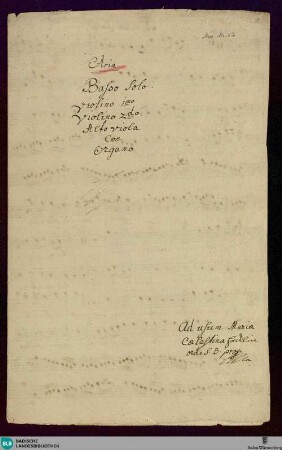 Aria
Basso Solo.
Violino 1mo
Violino 2do.
Alto Viola
Con
Organo
Ad usum Maria
Cælestina
BLB BADISCHE
LANDESBIBLIOTHEK
Baden-Württemberg